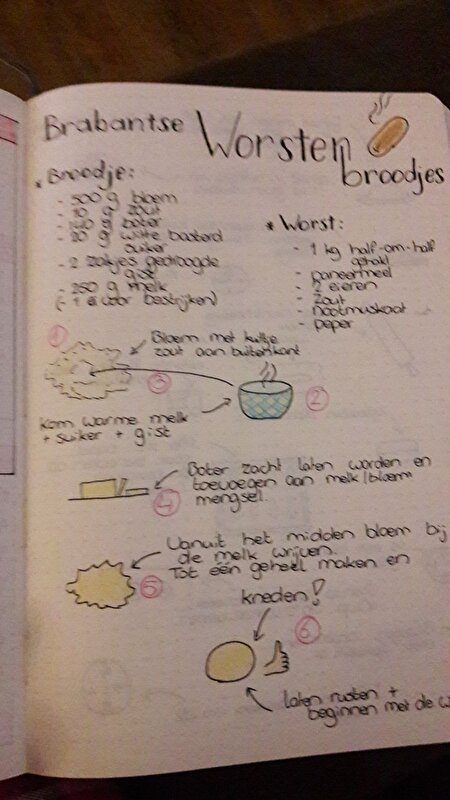 Brabantse Worsten
broodjes
* Broodje:
- 500 g bloem
- 10 g zout
- g boter
- 20 g witte basterd
suiker
- 2 zakjes gedroogde
gist
- 250 g melk
(- 1 ei voor bestrijken)
* Worst:
- 1 kg half-om-half
gehakt
- paneermeel
- 2 eieren
- zout
- nootmuskaat
- peper
1
Bloem met kuiltje
zout aan buitenkant
3
2
Kom warme melk
+ suiker + gist
Boter zacht laten worden en
toevoegen aan melk/bloem
mengsel.
4
Vanuit het midden bloem bij
de melk wrijven.
Tot één geheel maken en
kneden!
5
6
laten rusten +
beginnen met de w